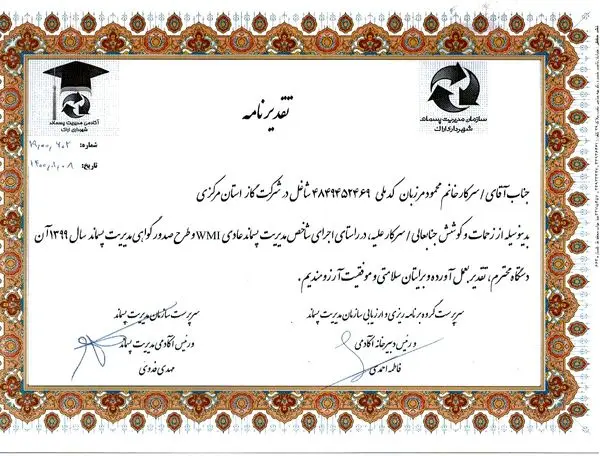 سازمان مدیریت پسماند
شهرداری اراک
آکادمی مدیریت پسماند
شهرداری اراک
تقدیرنامه
شماره:
تاریخ: ۱۴۰۰,۱,۰۸
جناب آقای / سرکار خانم محمود مرزبان کد ملی ۴۸۴۹۴۵۲۴۶۹ شاغل در شرکت گاز استان مرکزی
بدینوسیله از زحمات و کوشش جنابعالی / سرکار علیه، در راستای اجرای شاخص مدیریت پسماند عادی WMI و طرح صدور گواهی مدیریت پسماند سال ۱۳۹۹ آن
دستگاه محترم، تقدیر بعمل آورده و برایتان سلامتی و موفقیت آرزومندیم.
سرپرست گروه برنامه ریزی و ارزیابی سازمان مدیریت پسماند
و رئیس دبیرخانه آکادمی
فاطمه احمدی
سرپرست سازمان مدیریت پسماند
و رئیس آکادمی مدیریت پسماند
مهدی فدوی